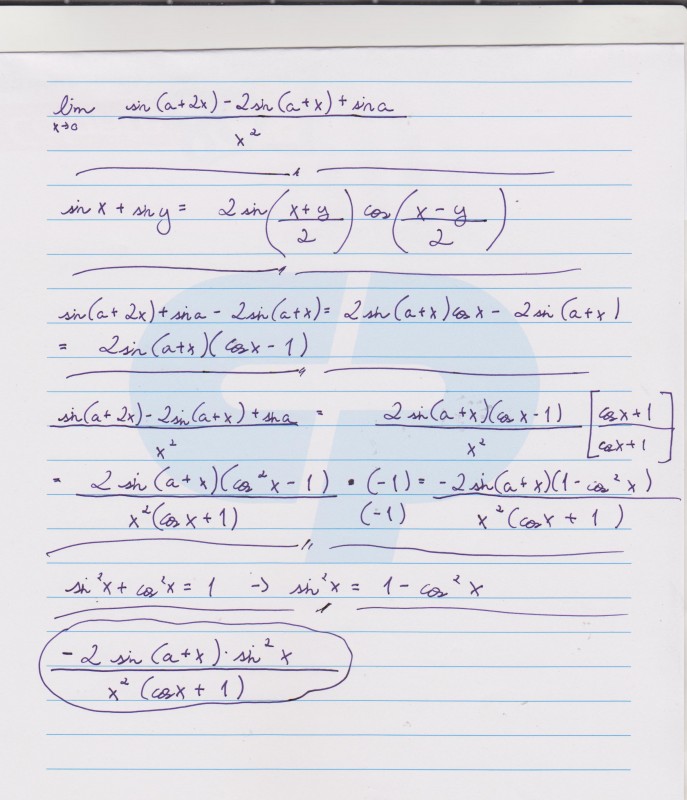 lim x→0 (sin(a+2x) - 2sin(a+x) + sin a) / x²
sin x + sin y = 2 sin((x+y)/2) cos((x-y)/2)
sin(a+2x) + sin a - 2sin(a+x) = 2sin(a+x)cos x - 2sin(a+x)
= 2sin(a+x)(cos x - 1)
(sin(a+2x) - 2sin(a+x) + sin a) / x² = (2sin(a+x)(cos x - 1) / x²) [(cos x + 1) / (cos x + 1)]
= (2 sin(a+x)(cos²x - 1)) / (x²(cos x + 1)) · (-1)/(-1) = (-2sin(a+x)(1 - cos²x)) / (x²(cos x + 1))
sin²x + cos²x = 1 → sin²x = 1 - cos²x
(-2 sin(a+x) · sin²x) / (x²(cos x + 1))